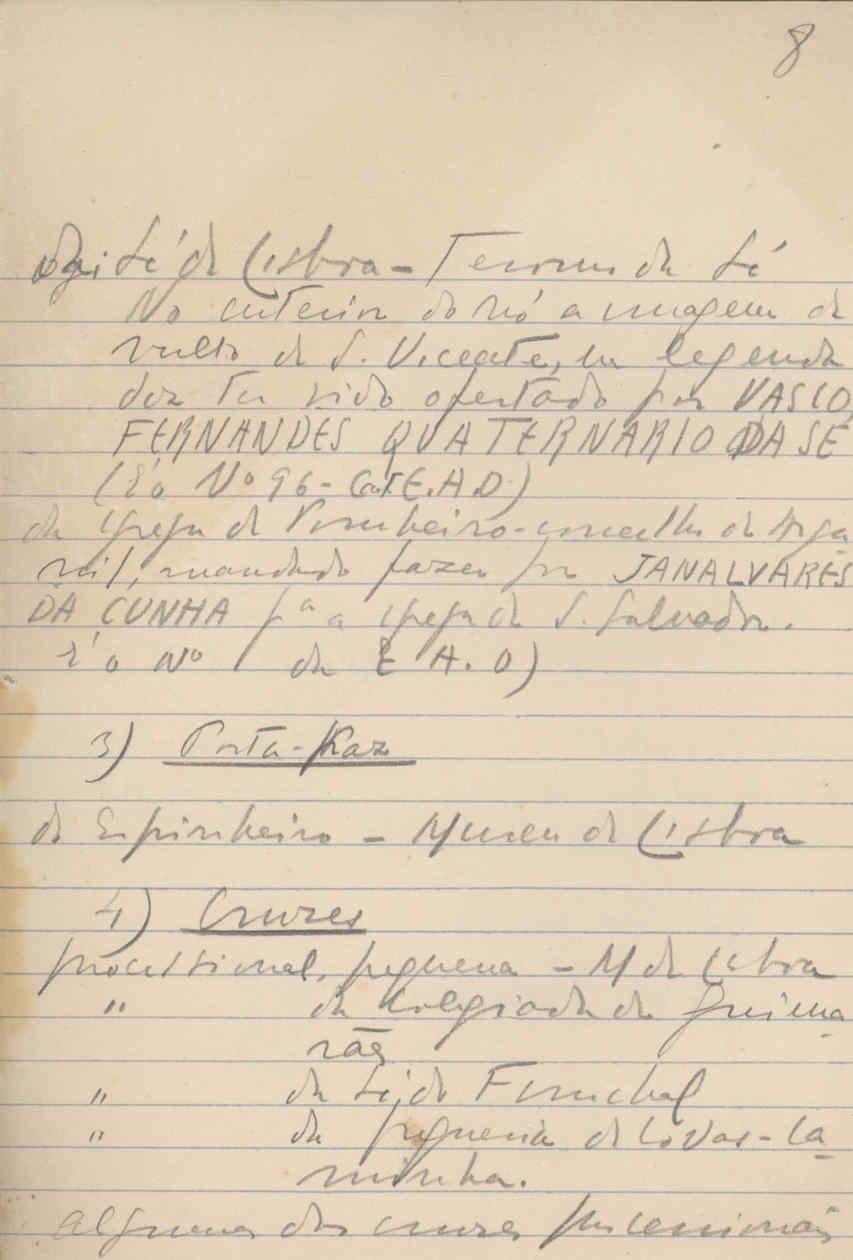 8
da Sé de Lisboa - Tesouro da Sé
No interior do nó a imagem de
vulto de S. Vicente, na legenda
diz ter sido ofertado por VASCO
FERNANDES QUATERNARIO DA SÉ
(É o Nº 96 - Cat. E.A.O)
da igreja de Pombeiro - concelho de Arga-
nil, mandado fazer por JANALVARES
DA CUNHA pª a igreja de S. Salvador.
É o Nº da E A. O)
3) Porta-Paz
do Espinheiro - Museu de Lisboa
4) Cruzes
processional, pequena - M de Lisboa
" da Colegiada de Guima-
rães
" da Sé do Funchal
" da freguesia de Covas - Ca
minha.
algumas das cruzes processionais